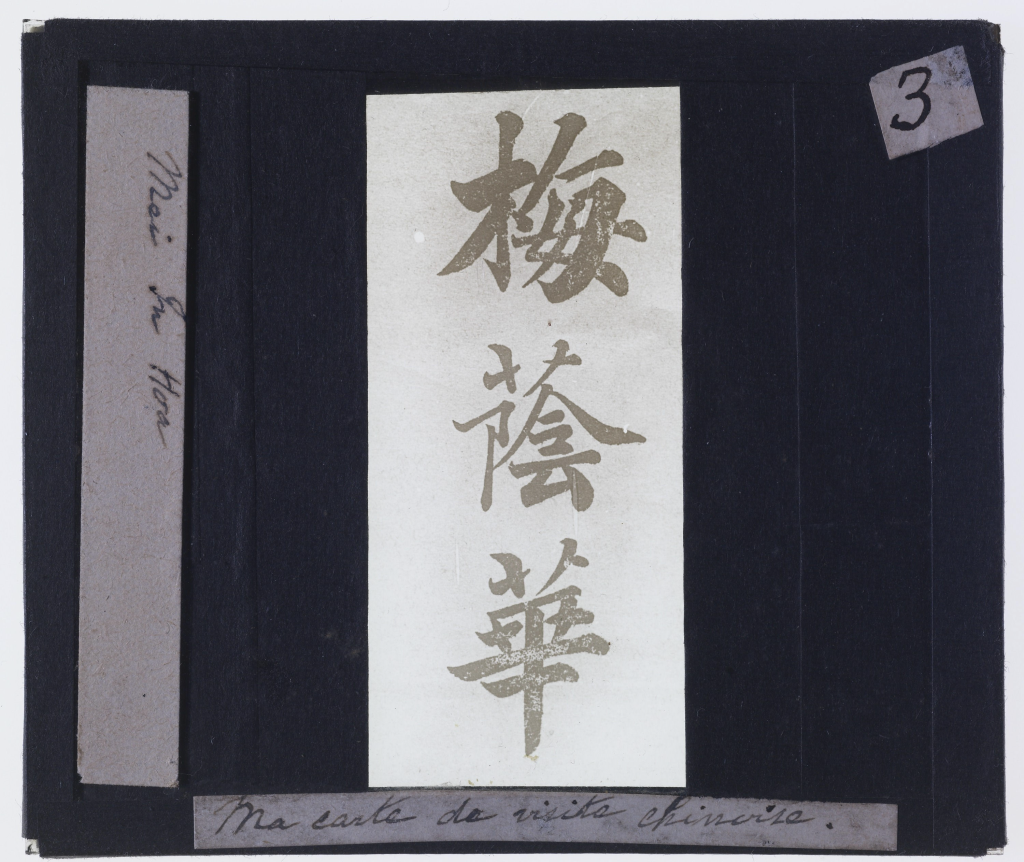 3
Mei In Hoa
梅蔭華
Ma carte de visite chinoise.